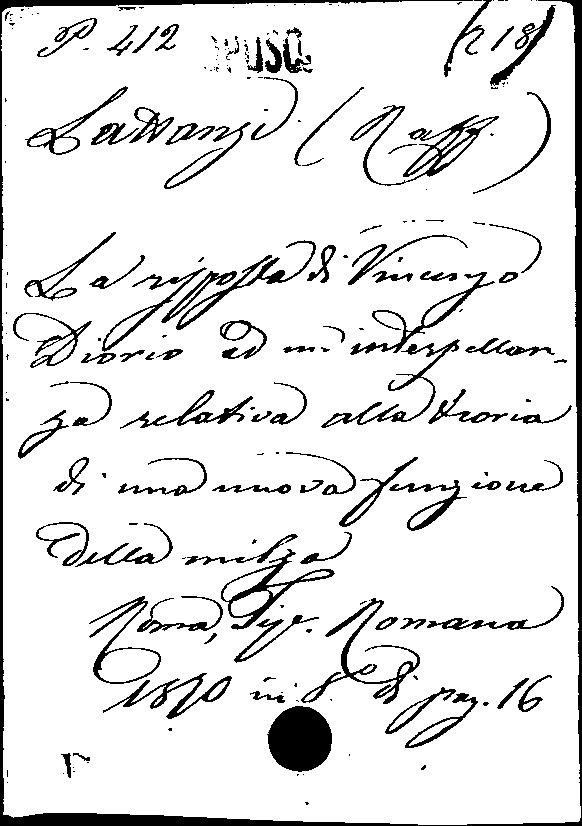 P. 412 OPUSC. (218)
Lattanzi (Raff.)
La risposta di Vincenzo
Diorio ad un' interpellan-
za relativa alla teoria
di una nuova funzione
della milza
Roma, Tip. Romana
1870 in 8.º di pag. 16